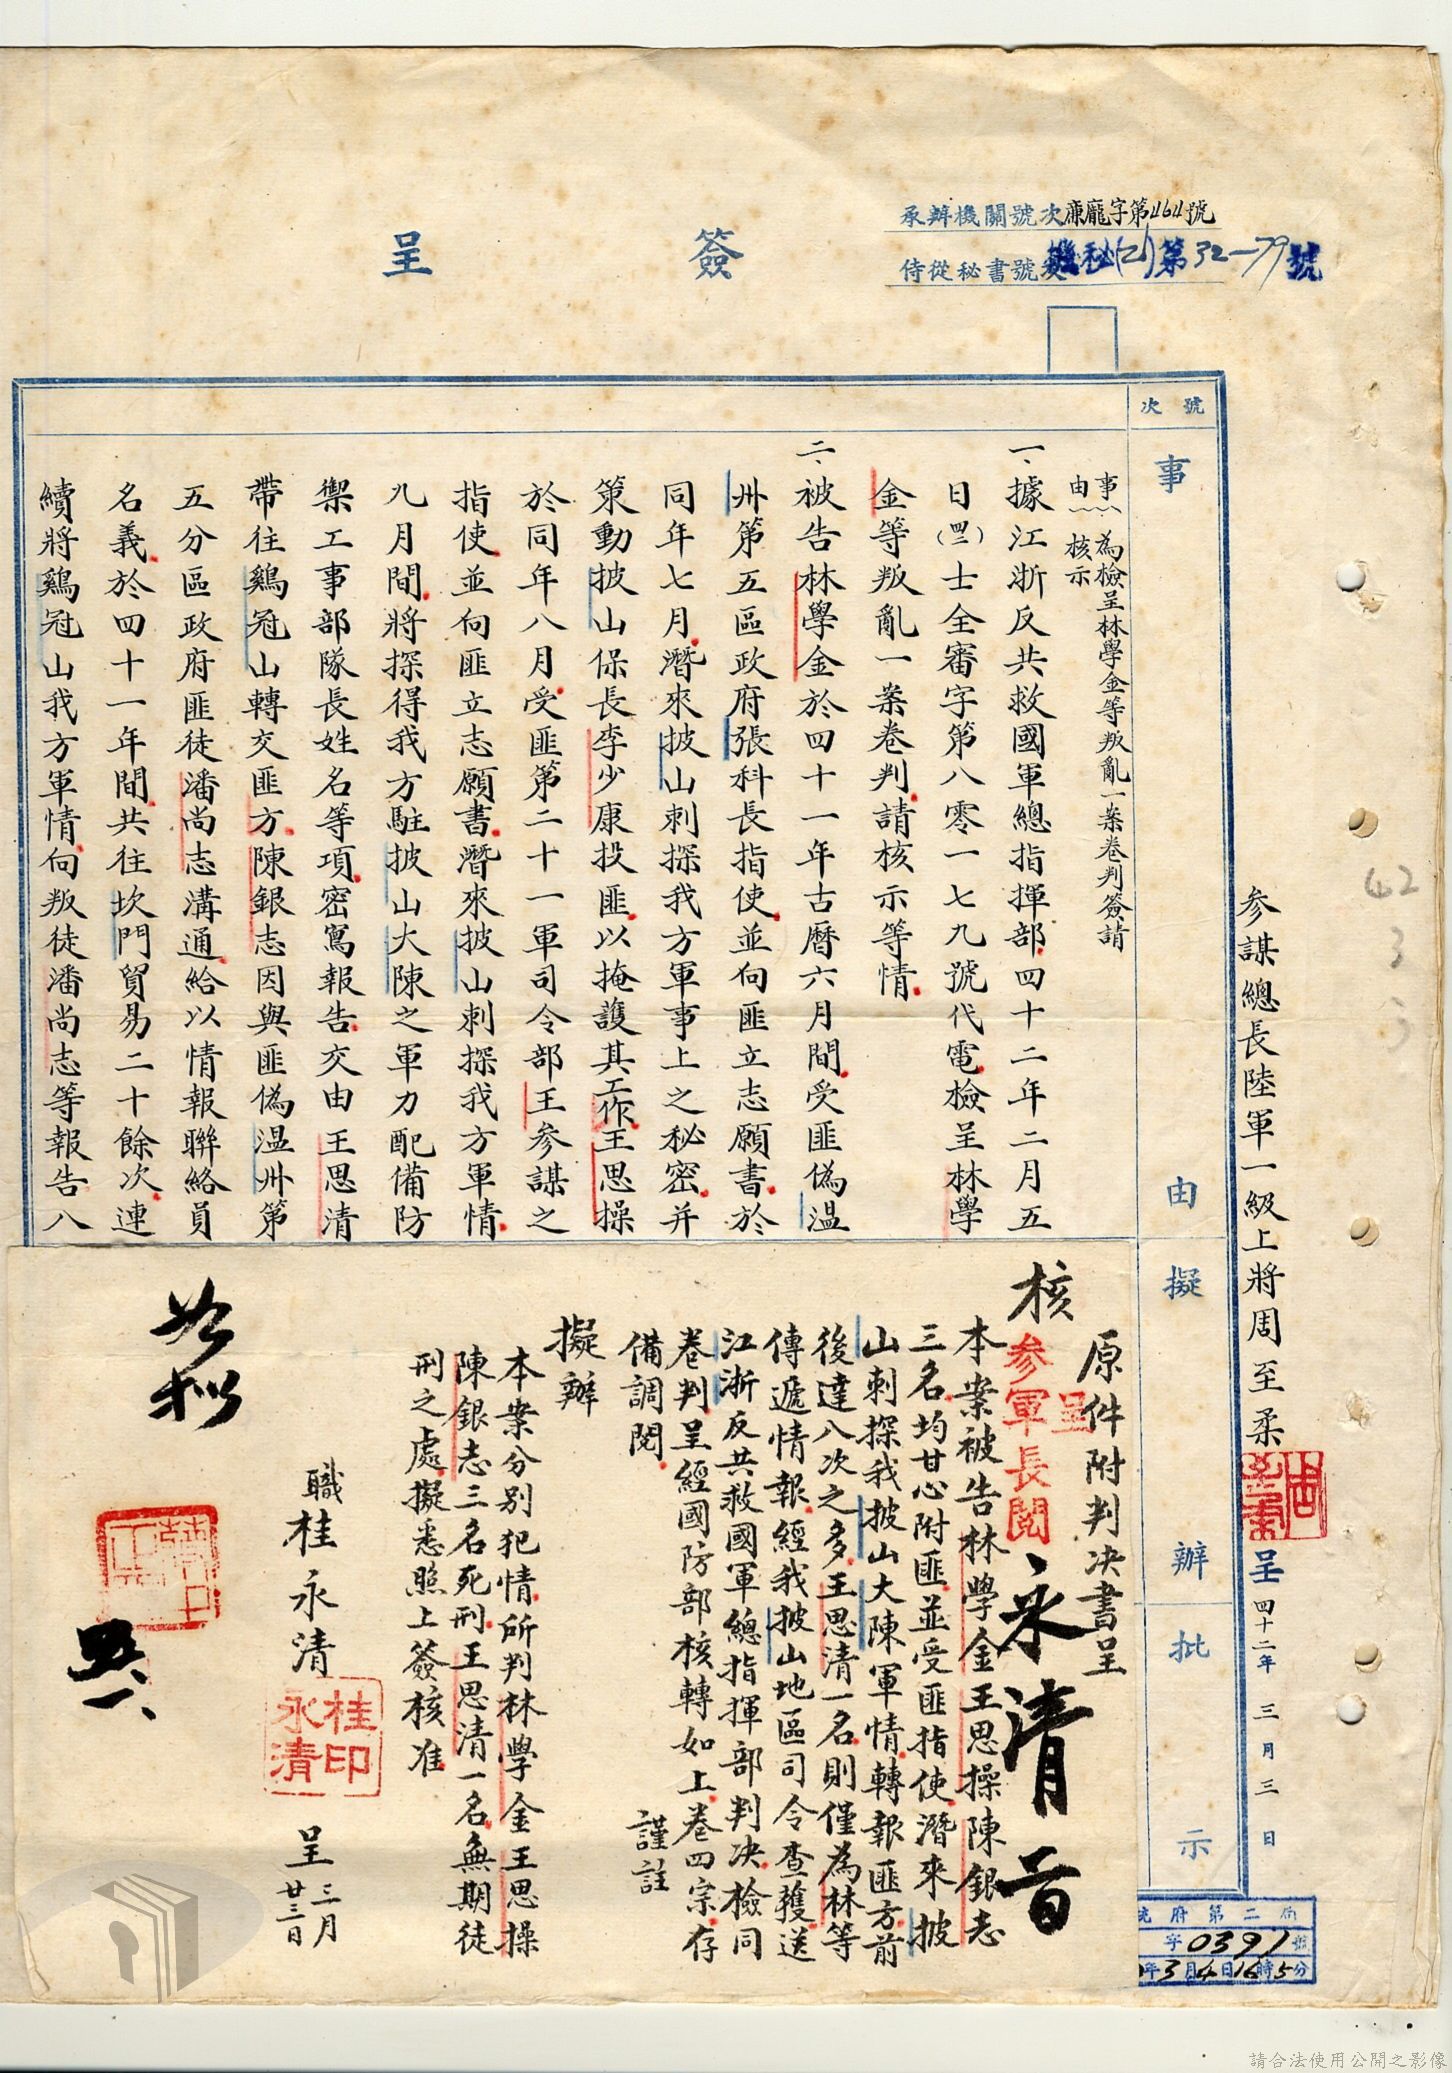 簽呈
承辦機關號次廉龐字第464號
侍從秘書號次機秘(乙)第32-79號
號次
事由
擬辦
批示
參謀總長陸軍一級上將周至柔
呈四十二年三月三日
42
3
事由：為檢呈林學金等叛亂一案卷判簽請
核示
一、據江浙反共救國軍總指揮部四十二年二月五
日(四二)士全審字第八零一七九號代電檢呈林學
金等叛亂一案卷判請核示等情
二、被告林學金於四十一年古曆六月間受匪偽溫
州第五區政府張科長指使並向匪立志願書於
同年七月潛來披山刺探我方軍事上之秘密并
策動披山保長李少康投匪以掩護其工作王思操
於同年八月受匪第二十一軍司令部王參謀之
指使並向匪立志願書潛來披山刺探我方軍情
九月間將探得我方駐披山大陳之軍力配備防
禦工事部隊長姓名等項密寫報告交由王思清
帶往鷄冠山轉交匪方陳銀志因與匪偽溫州第
五分區政府匪徒潘尚志溝通給以情報聯絡員
名義於四十一年間共往坎門貿易二十餘次連
續將鷄冠山我方軍情向叛徒潘尚志等報告八
原件附判決書呈
核
呈
參軍長閱
永清
本案被告林學金王思操陳銀志
三名均甘心附匪並受匪指使潛來披
山刺探我披山大陳軍情轉報匪方前
後達八次之多王思清一名則僅為林等
傳遞情報經我披山地區司令查獲送
江浙反共救國軍總指揮部判決檢同
卷判呈經國防部核轉如上卷四宗存
備調閱 謹註
擬辦
本案分別犯情所判林學金王思操
陳銀志三名死刑王思清一名無期徒
刑之處擬悉照上簽核准
職桂永清
桂永清印
呈三月
廿三日
如擬
統府第二局
字0391號
年3月4日16時5分
請合法使用公開之影像